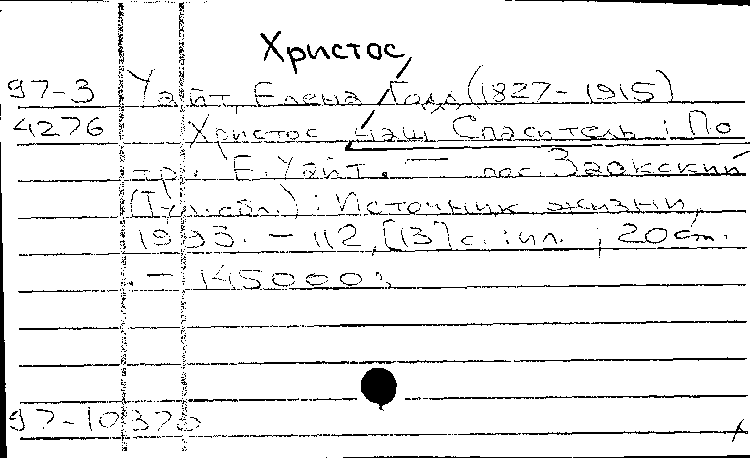 Христос
97-3 Уайт, Елена Годд (1827-1915)
4276 Христос наш Спаситель : По
пр. Е. Уайт. — пос. Заокский
(Тул. обл.) : Источник жизни,
1993. - 112, [13] с. : ил. ; 20 см.
. - 145000
97-10370